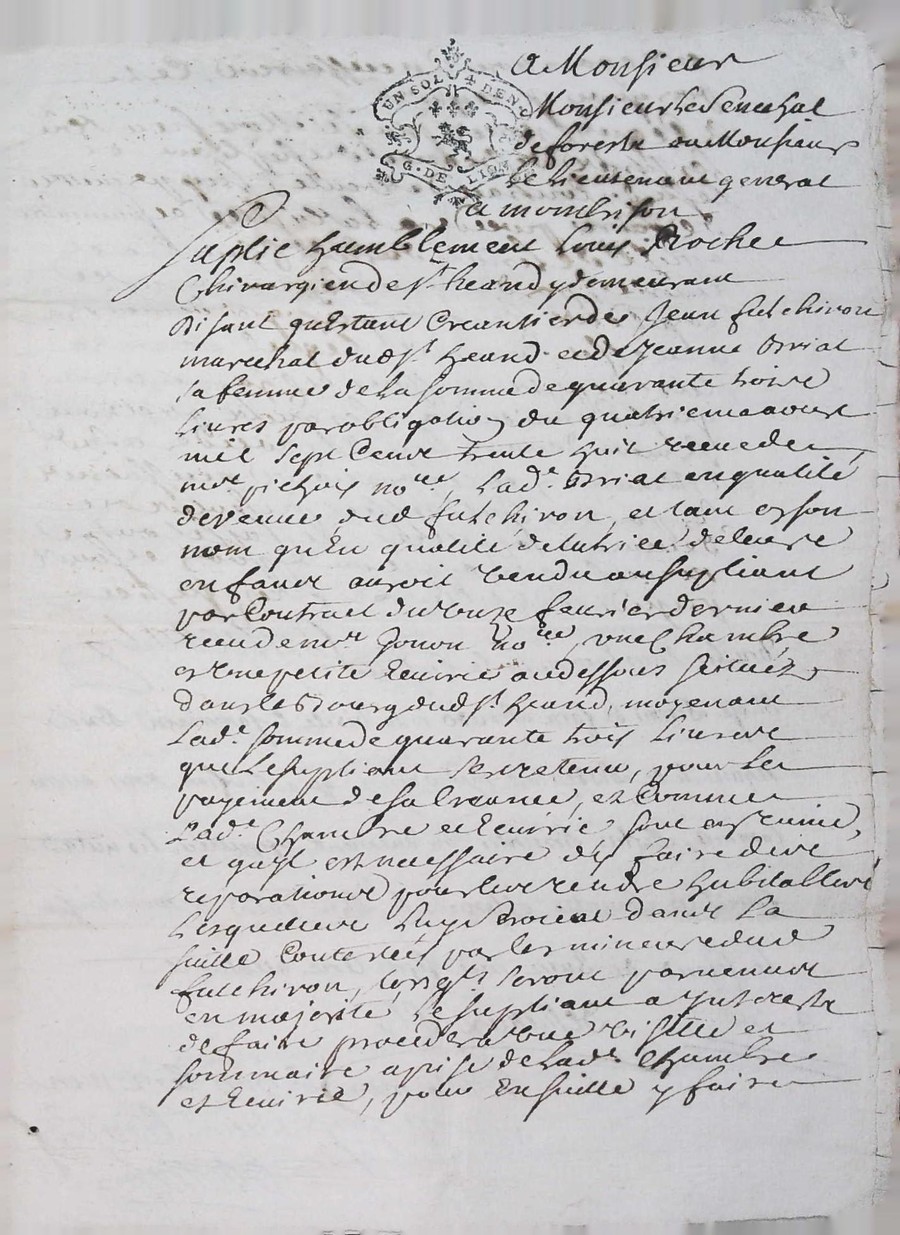 UN SOL 4 DEN.
G. DE LION
A Monsieur
Monsieur le Senechal
de forestz ou Monsieur
le Lieutenant general
a montbrison
Suplie humblement Louis Rochee
Chirurgien de St. heand y demeurant
Disant qu'Estant Creantier de Jean fulchiron
marechal dud. St. heand et de Jeanne Briat
sa femme de la somme de quarante troire
Livres par obligation du quatrieme aoust
mil Sept Cent trente huit receue de
me. pichois nore, Lad. Briat en qualité
de veuve dud fulchiron, et tant en son
nom qu'En qualité de tutrice de leurs
enfants auroit vendu au supliant
par Contrat du onze fevrier dernier
receu de me. Jouon nore, une Chambre
et une petite Ecuirie au dessous scituée
dans le Bourg dud. St. heand, moyenant
Lad. somme de quarante trois Livres
que Le supliant s'est retenu, pour Le
payement de sa Creance, et Comme
Lad. Chambre et Ecuirie sont en ruine,
et qu'yl est necessaire d'y faire dive
reparations pour les rendre habitables
Lesquelles Luy seroient dans La
suitte Contestées par les mineurs dud
fulchiron, lorsqls. seront parvenus
en majorité, Le supliant a ynterestz
de faire proceder a une visitte et
sommaire aprise de Lad. Chambre
et Ecuirie, pour Ensuitte y faire